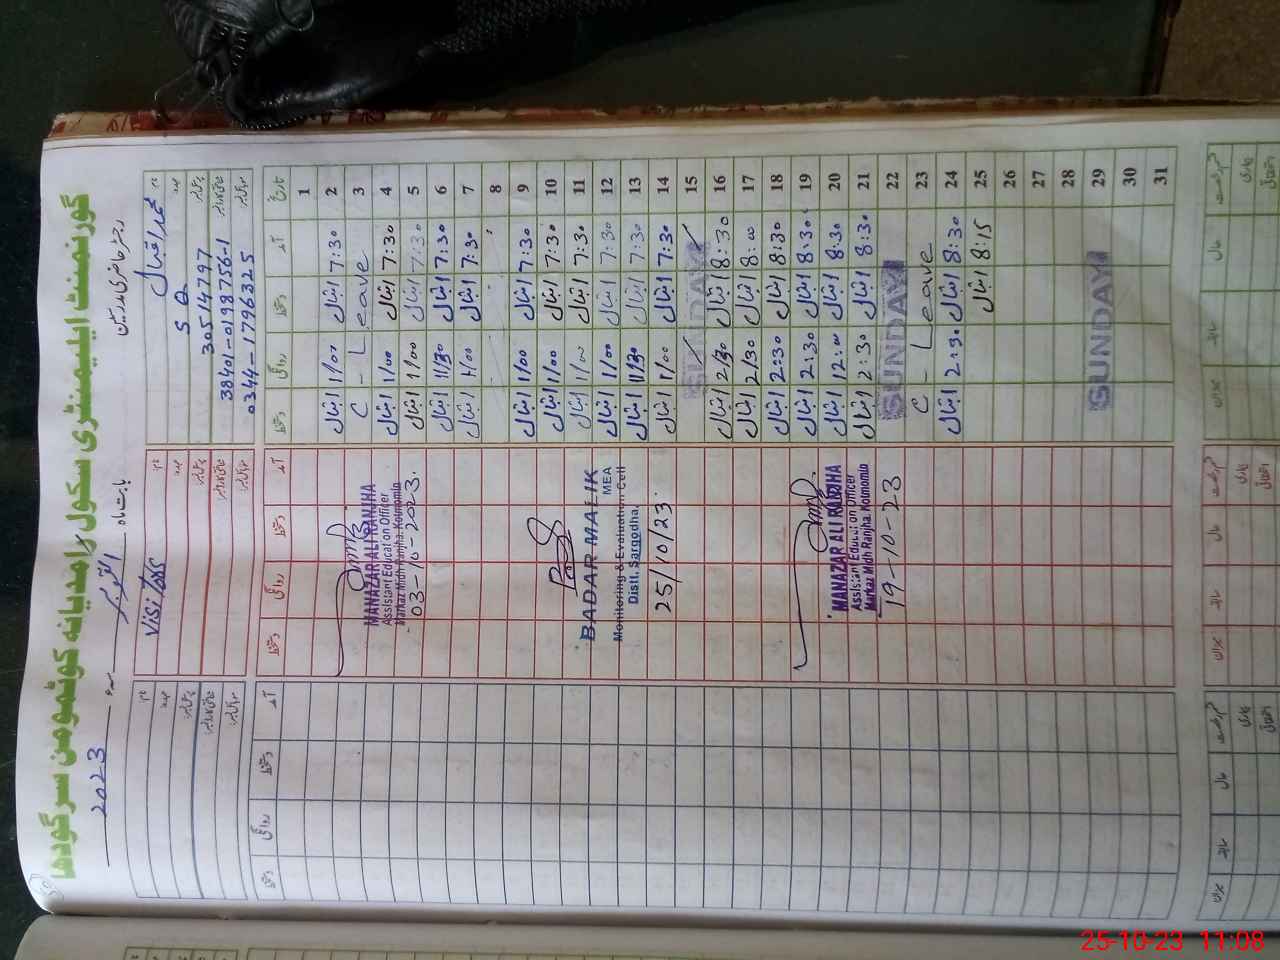 گورنمنٹ ایلیمنٹری سکول رامدیانہ کوٹمومن سرگودھا
رجسٹر حاضری مدرسین بابت ماہ اکتوبر سنہ 2023
نام محمد اقبال
عہدہ S Q
30514797
38401-0198756-1
0344-1796325
نام Visitors
عہدہ
نام
عہدہ
تاریخ آمد دستخط روانگی دستخط آمد دستخط روانگی دستخط آمد دستخط روانگی دستخط
1
2 7:30 اقبال 1/00 اقبال
3 C - Leave
4 7:30 اقبال 1/00 اقبال
5 7:30 اقبال 1/00 اقبال
6 7:30 اقبال 11/30 اقبال
7 7:30 اقبال 1/00 اقبال
8
9 7:30 اقبال 1/00 اقبال
10 7:30 اقبال 1/00 اقبال
11 7:30 اقبال 1/00 اقبال
12 7:30 اقبال 1/00 اقبال
13 7:30 اقبال 11/30 اقبال
14 7:30 اقبال 1/00 اقبال
15 SUNDAY
16 8:30 اقبال 2/30 اقبال
17 8:00 اقبال 2/30 اقبال
18 8:30 اقبال 2:30 اقبال
19 8:30 اقبال 2:30 اقبال
20 8:30 اقبال 12:00 اقبال
21 8:30 اقبال 2:30 اقبال
22 SUNDAY
23 C - Leave
24 8:30 اقبال 2:30 اقبال
25 8:15 اقبال
26
27
28
29 SUNDAY
30
31
MANAZAR ALI RANJHA
Assistant Education Officer
Markaz Midh Ranjha, Kotmomin
03-10-2023.
BADAR MALIK
MEA
Monitoring & Evaluation Cell
Distt. Sargodha.
25/10/23
MANAZAR ALI RANJHA
Assistant Education Officer
Markaz Midh Ranjha, Kotmomin
19-10-23
25-10-23 11:08